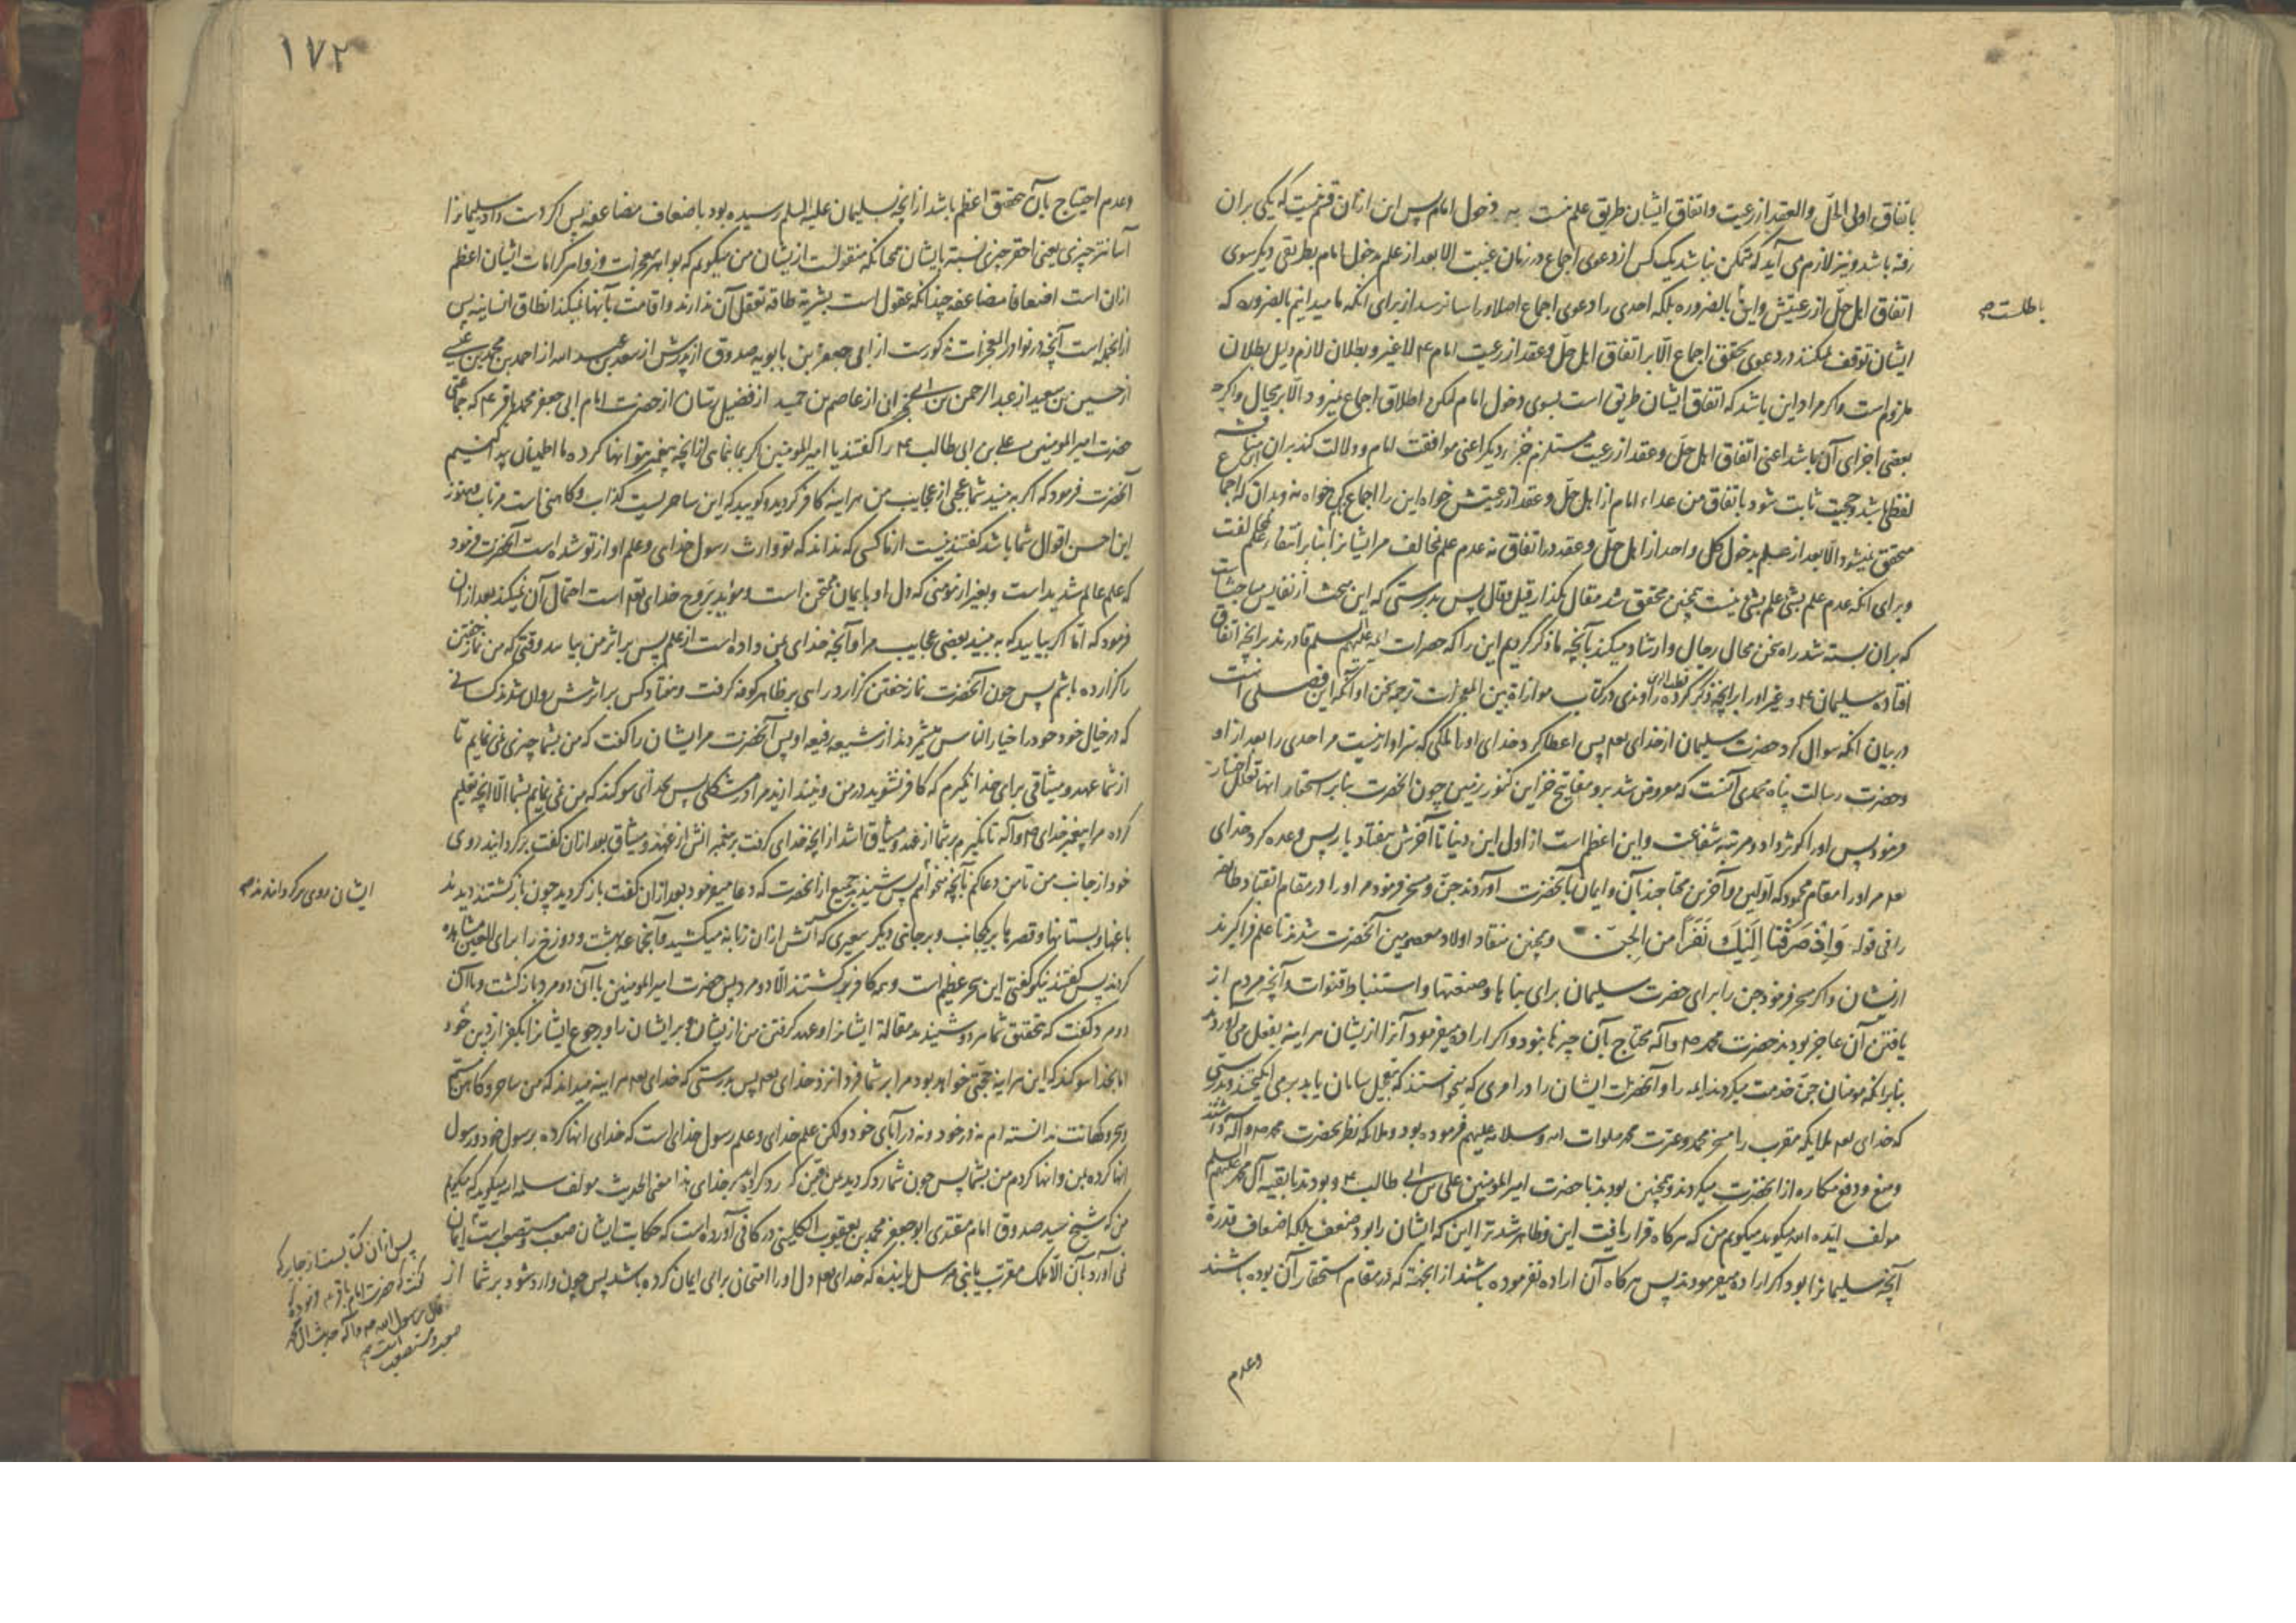 باتفاق اولی الحلّ والعقد از رعیت و اتفاق ایشان طریق علم نیست به دخول امام پس این ازان قسم نیست که یکی بر ان
رفته باشد و نیز لازم می آید که متمکن نباشد یک کس از دعوی اجماع در زمان غیبت الا بعد از علم بدخول امام بطریقی دیگر سوی
اتفاق اهل حلّ از رعیتش و این بالضروره بلکه احدی را دعوی اجماع اصلا و راسا نرسد از برای انکه ما میدانیم بالضروره که
باطلست صح
ایشان توقف نمیکنند در دعوی تحقق اجماع الّا بر اتفاق اهل حلّ و عقد از رعیت امام ع لا غیر و بطلان لازم دلیل بطلان
ملزوم است و اکر مراد این باشد که اتفاق ایشان طریق است بسوی دخول امام لکن اطلاق اجماع نمیرود الّا بر بحال و اکرچه
بعضی اجزای آن باشد اعنی اتفاق اهل حلّ و عقد از رعیت مستلزم جزء دیگر اعنی موافقت امام و دلالت کند بران
لفظی باشد و حجیت ثابت شود باتفاق من عداء امام از اهل حلّ و عقد از رعیتش خواه این را اجماع کویی خواه نه و بدان که اجماع
محقق نمیشود الّا بعد از علم بدخول کل واحد از اهل حلّ و عقد در اتفاق نه عدم علم مخالف مر ایشانرا بنا بر انتفاء علم
و برای انکه عدم علم بشی علم بشی نیست همچنین محقق شد مقال بگذار قیل و قال پس بدرستی که این بحث از نفایس مباحث است
که بران بسته شد راه سخن محال رجال و ارشاد میکند بآنچه ما ذکر کردیم این را که حضرات ائمه علیهم السلم قادرند بر انچه اتفاق
افتاده سلیمان ع و غیر او را بر انچه ذکر کرده قطب راوندی در کتاب موازاة بین المعجزات ترجمه سخن او آنکه این فصلی است
در بیان انکه سوال کرد حضرت سلیمان از خدای تعم پس اعطا کرد خدای او را ملکی که سزاوار نیست مر احدی را بعد از او
و حضرت رسالت پناه محمدی آنست که معروض شد برو مفاتیح خزاین کنوز زمین چون انحضرت بنابر استحقار انها تقلل اختیار
فرمود پس او را کوثر داد و مرتبه شفاعت و این اعظم است از اول این دنیا تا آخرش بهفتاد بار پس وعده کرد خدای
تعم مر او را مقام محمود که اوّلین و آخرین محتاجند بآن و ایمان بآنحضرت آوردند جنّ و مسخر فرمود مر او را در مقام انقیاد طایفه
را فی قوله وَاِذْ صَرَفْنَا اِلَیْكَ نَفَرًا مِنَ الْجِنّ و همچنین منقاد اولاد معصومین آنحضرت شدند تا علم فرا گیرند
ازیشان و اکر مسخر فرمود جن را برای حضرت سلیمان برای بناها و صنعتها و استنباط قنوات و آنچه مردم از
یافتن آن عاجز بودند حضرت محمد ص و آله محتاج بآن چیزها نبود و اکر اراده میفرمود آنرا ازیشان هر اینه بفعل می آوردند
بنابر انکه مومنان جنّ خدمت میکردند ائمه را و آنحضرت ایشان را در امری که میخواستند که بتعجیل سامان یابد بر می انگیختند و بدرستی
که خدای تعم ملایکه مقرب را مسخر محمد و عترت محمد صلوات الله و سلامه علیهم فرموده بود و ملایکه نظر بحضرت محمد ص و آله داشتند
و منع و دفع مکاره از انحضرت میکردند و همچنین بودند با حضرت امیر المومنین علی بن ابی طالب ع و بودند با بقیه آل محمد علیهم السلم
مولف ایّده الله میکوید میکویم من که هر کاه قرار یافت این و ظاهر شد ترا این که ایشان را بود ضعف بلکه اضعاف قدرة
آنچه سلیمانرا بود اکر اراده میفرمودند پس هر کاه آن اراده نفرموده باشند از انجهة که در مقام استحقار آن بوده باشند
وعدم
۱۷۲
وعدم احتیاج بآن تحقق اعظم باشد از انچه بسلیمان علیه السلم رسیده بود باضعاف مضاعفه پس اکر دست داد سلیمانرا
آسانتر چیزی یعنی احقر چیزی نسبت بایشان همچنانکه منقولست ازیشان من میکویم که بواهر معجزات و زواهر کرامات ایشان اعظم
ازان است اضعافا مضاعفه چندانکه عقول است بشریه طاقه تعقل آن ندارند و اقامت بآنها نمیکند انطاق انسانیه پس
از انجمله است آنچه در نوادر المعجزات مذکورست از ابی جعفر بن بابویه صدوق از پدرش از سعد بن عبد الله از احمد بن محمد بن عیسی
از حسین بن سعید از عبد الرحمن بن ابی نجران از عاصم بن حمید از فضیل رسّان از حضرت امام ابی جعفر محمد باقر ع که جماعتی
حضرت امیر المومنین علی بن ابی طالب ع را کفتند یا امیر المومنین اکر بما بنمائی از انچه پیغمبر بتو انها کرده ما اطمینان پیدا کنیم
آنحضرت فرمود که اکر به بینید شما عجبی از عجایب من هر اینه کافر کردید و کویید که این ساحریست کذاب و کاهنی است مرتاب و هنوز
این احسن اقوال شما باشد کفتند نیست از ما کسی که نداند که تو وارث رسول خدایی و علم او از تو شده است آنحضرت فرمود
که علم عالم شدید است و بغیر از مومنی که دل او بایمان ممتحن است و موید بروح خدای تعم است احتمال آن نمیکند بعد ازان
فرمود که امّا اکر بیایید که به بینید بعضی عجایب مرا و آنچه خدای بمن داده است از علم پس بر اثر من بیایید وقتی که من نماز خفتن
را کزارده باشم پس چون آنحضرت نماز خفتن کزارد راهی بر ظاهر کوفه کرفت و هفتاد کس بر اثرش روان شدند کسانی
که در خیال خود خود را خیار الناس میشمردند از شیعه رفیعه او پس آنحضرت مر ایشان را کفت که من بشما چیزی نمی نمایم تا
از شما عهد و میثاقی برای خدا نگیرم که کافر نشوید در من و نیندازید مرا در مشکلی پس بخدای سوکند که من نمی نمایم بشما الّا انچه تعلیم
کرده مرا پیغمبر خدای ص و آله تا نگیرم بر شما از عهد و میثاق اشد از انچه خدای کرفت بر پیغمبرانش از عهد و میثاق بعد ازان کفت بر کردانید روی
خود از جانب من تا من دعا کنم بآنچه میخواهم پس شنیدند جمیع از انحضرت که دعا میفرمود بعد ازان کفت باز کردید چون باز کشتند دیدند
ایشان روی بر کردانیدند صح
باغها و بستانها و قصرها بر یکجانب و بر جانبی دیکر سعیری که آتش ازان زبانه میکشید و آنجا بهشت و دوزخ را برای العین مشاهده
کردند پس کفتند نیکو کفتی این سحر عظیم است و همه کافر بر کشتند الّا دو مرد پس حضرت امیر المومنین با آن دو مرد باز کشت و باآن
دو مرد کفت که بتحقیق شما هر دو شنیدید مقالة ایشانرا و عهد کرفتن من ازیشان بر ایشان را و رجوع ایشانرا بکفر از دین خود
اما بخدا سوکند که این هر اینه حجتی خواهد بود مرا بر شما فردا نزد خدای تعم پس بدرستی که خدای تعم هر اینه میداند که من ساحر و کاهن نیستم
و سحر و کهانت ندانسته ام نه در خود و نه در آبای خود و لکن علم خدای و علم رسول خدای است که خدای انها کرده برسول خود و رسول
انها کرده بمن و انها کردم من بشما پس چون شما رد کردید بر من رد کرده اید بر خدای هذا معنی الحدیث مولف سلمه الله میکوید که میکویم
من که شیخ سید صدوق امام مقتدی ابو جعفر محمد بن یعقوب الکلینی در کافی آورده است که حکایت ایشان صعب و مستصعب است ایمان
نمی آورد بآن الّا ملک مقرب یا نبی مرسل یا بندهٔ که خدای تعم دل او را امتحان برای ایمان کرده باشد پس چون وارد شود بر شما از
پس ازان کتابست از جابر که
کفت که حضرت امام باقر ع فرمود که
قال رسول الله ص و آله حدیث آل محمد
صعب و مستصعب
است صح